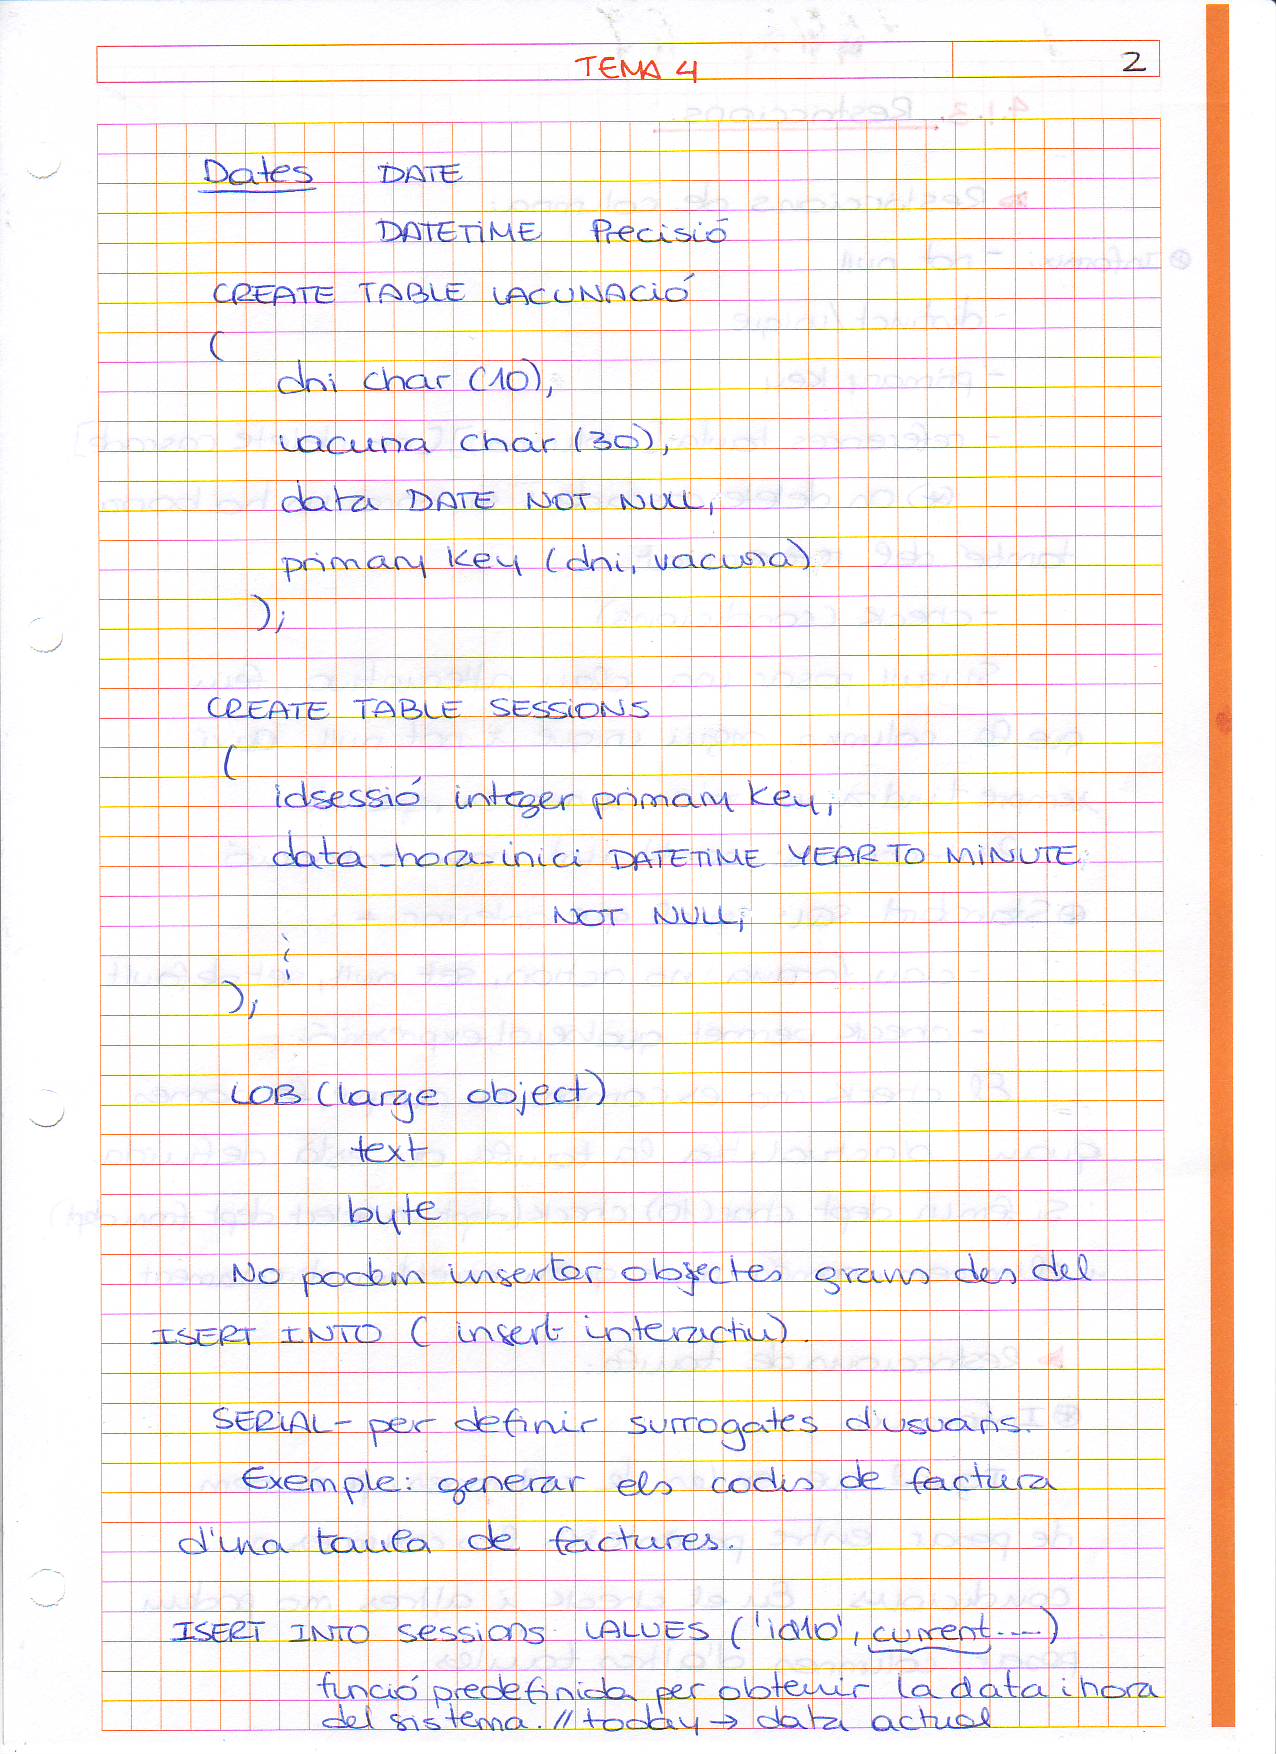 TEMA 4 2
Dates DATE
DATETIME Precisió
CREATE TABLE VACUNACIÓ
(
dni char (10),
vacuna char (30),
data DATE NOT NULL,
primary key (dni, vacuna)
);
CREATE TABLE SESSIONS
(
idsessió integer primary key,
data_hora_inici DATETIME YEAR TO MINUTE
NOT NULL,
⋮
);
LOB (large object)
text
byte
No podem insertar objectes grans des del
ISERT INTO ( insert interactiu).
SERIAL - per definir surrogates d'usuaris.
Exemple: generar els codis de factura
d'una taula de factures.
ISERT INTO sessions VALUES ('id10', current....)
funció predefinida per obtenir la data i hora
del sistema. // today → data actual